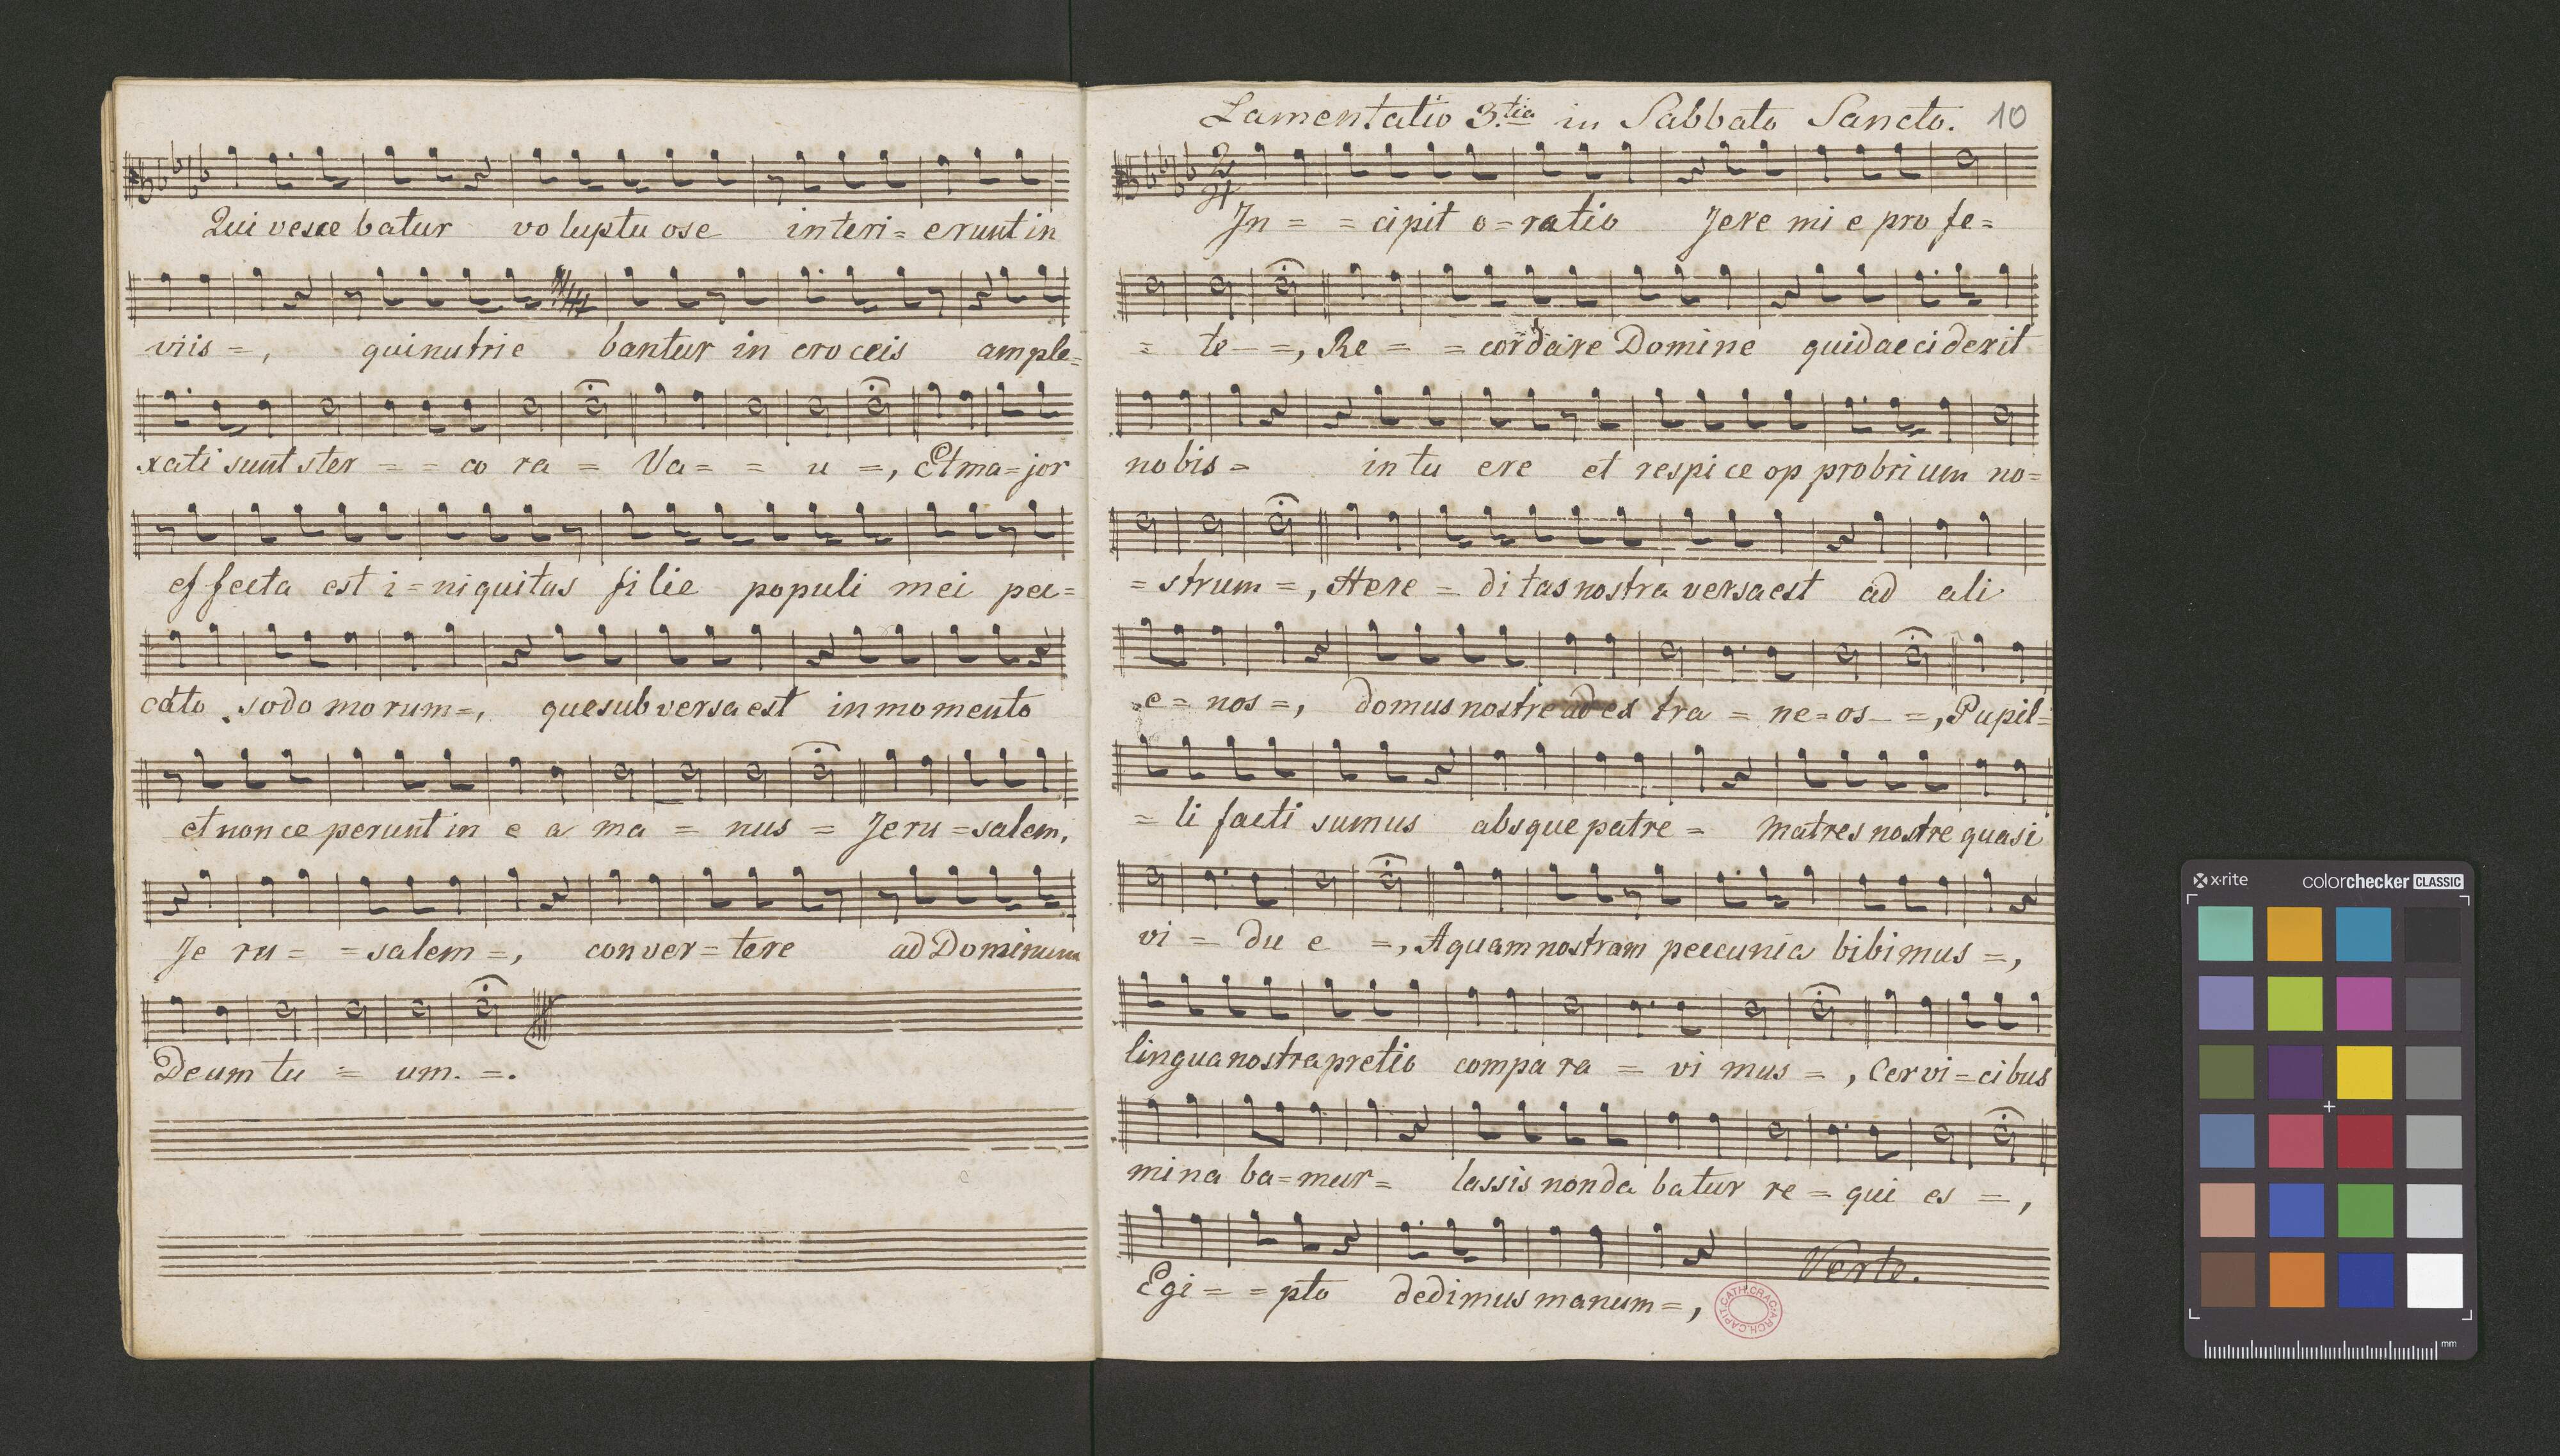 Qui vesce batur vo luptu ose in teri = erunt in
viis =, qui nutrie bantur in cro ceis ample=
xati sunt ster = = co ra = Va = = u =, Et ma = jor
effecta est i = niquitas filie populi mei pec=
cato sodo morum =, que sub versa est in momento
et non ce perunt in e a ma = nus = Jeru = salem,
Je ru = = salem =, conver = tere ad Dominum
Deum tu = um. =.
Lamentatio 3.tia in Sabbato Sancto. 10
2/4
In = = cipit o = ratio Jere mi e pro fe=
= te = =, Re = = cordare Domine quid acciderit
nobis = in tu ere et respi ce op probri um no=
= strum =, Here = di tas nostra versa est ad ali
e = nos =, domus nostre ad ex tra = ne = os = =, Pupil=
= li facti sumus absque patre = matres nostre quasi
vi = du e =, Aquam nostram peccunia bibimus =,
lingua nostra pretio compa ra = vi mus =, Cervi = cibus
mina ba = mur = lassis non da batur re = qui es =,
Egi = = pto dedimus manum =,
Verte.
ARCH. CAPIT. CATH. CRAC.
x·rite colorchecker CLASSIC
mm